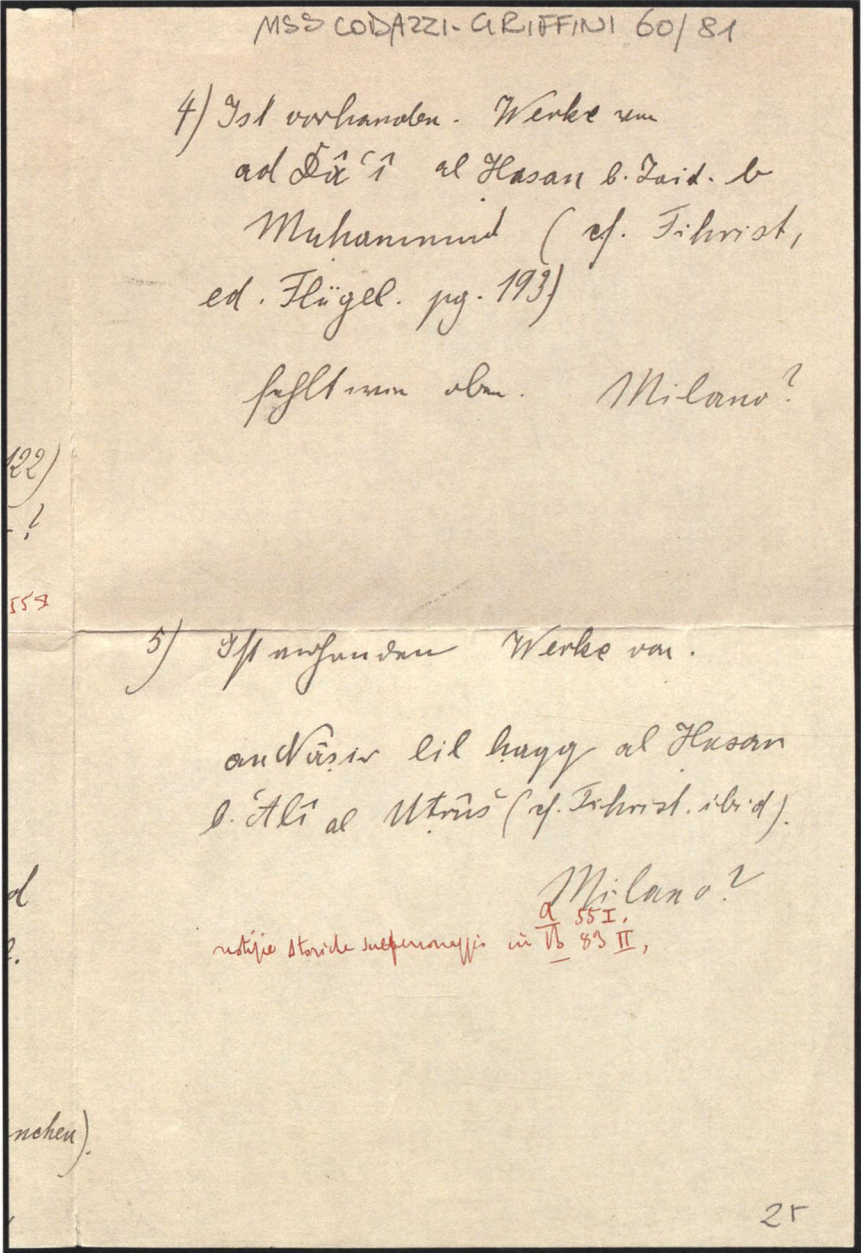 MSS CODAZZI-GRIFFINI 60/81
4) Ist vorhanden. Werke von
ad Dâ‘î al Hasan b. Zaid. b
Muhammad (cf. Fihrist,
ed. Flügel. pg. 193)
fehlt wie oben. Milano?
122)
-?
558
5) Ist vorhanden Werke von.
an Nâṣir lil ḥagg al Hasan
b. ‘Alî al Uṭrûš (cf. Fihrist. ibid).
d
Milano?
α 55 I,
notizie storiche sul personaggio in B 83 II,
2.
nchen).
2r